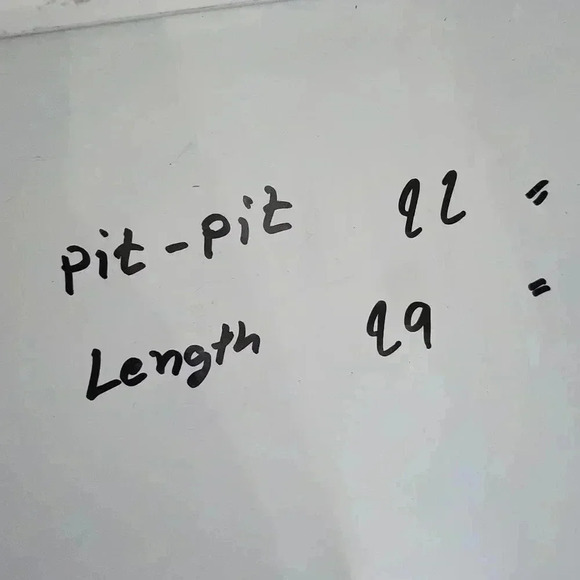 pit-pit 22 "
Length 29 "